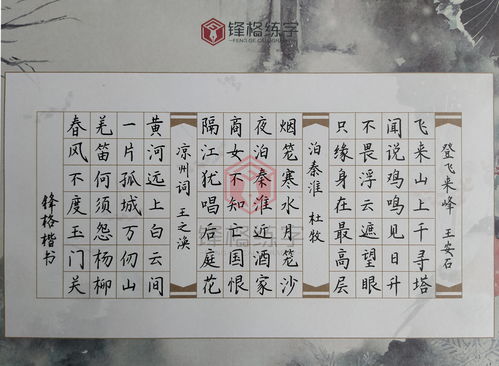 锋格练字
登飞来峰 王安石
飞来山上千寻塔
闻说鸡鸣见日升
不畏浮云遮望眼
只缘身在最高层
泊秦淮 杜牧
烟笼寒水月笼沙
夜泊秦淮近酒家
商女不知亡国恨
隔江犹唱后庭花
凉州词 王之涣
黄河远上白云间
一片孤城万仞山
羌笛何须怨杨柳
春风不度玉门关
锋格楷书
锋格练字